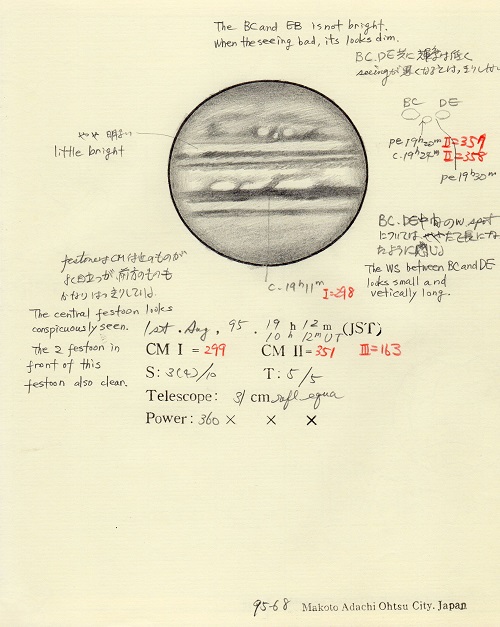 The BC and EB is not bright.
When the seeing bad, its looks dim.
BC. DE共に輝度は低く
seeingが悪くなると
BC DE
pe 19h20m II=357
c. 19h24m II=358
pe 19h30m
やや明るい
little bright
BC. DE中間のW. spot
については, やや
たように感じる
The WS between BC and DE
looks small and
vetically long.
c. 19h11m I=298
festoonはCM付近のものが
よく目立つが, 前方のものも
かなりはっきりしている.
The central festoon looks
conspicuously seen.
The 2 festoon in
front of this
festoon also clean.
1st. Aug, 95. 19 h 12 m (JST)
10 h 12 m UT
CM I = 299 CM II = 351 III=163
S: 3(4)/10 T: 5/5
Telescope: 31 cm refl equa
Power: 360 × × ×
95-68 Makoto Adachi Ohtsu City. Japan